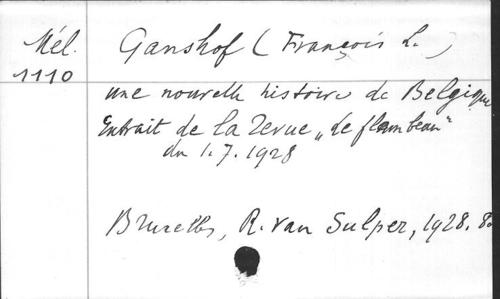 Mél.
1110
Ganshof (François L.)
une nouvelle histoire de Belgique
Extrait de la Revue „de flambeau"
du 1.7.1928
Bruxelles, R. van Sulper, 1928. 8o